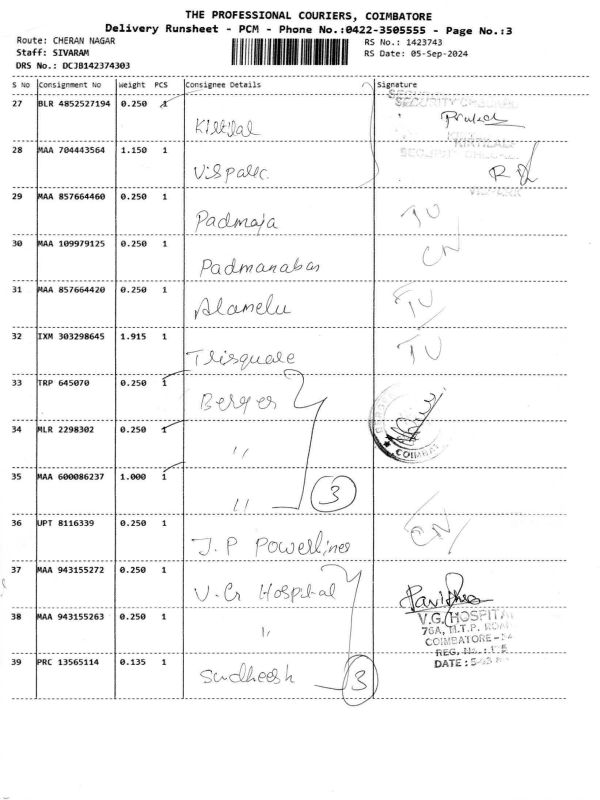 THE PROFESSIONAL COURIERS, COIMBATORE
Delivery Runsheet - PCM - Phone No.:0422-3505555 - Page No.:3
Route: CHERAN NAGAR
RS No.: 1423743
Staff: SIVARAM
RS Date: 05-Sep-2024
DRS No.: DCJB142374303
S No Consignment No Weight PCS Consignee Details Signature
27 BLR 4852527194 0.250 1
Kirtilal
28 MAA 704443564 1.150 1
SECURITY
29 MAA 857664460 0.250 1
Padmaja TU
30 MAA 109979125 0.250 1
Padmanaban CN
31 MAA 857664420 0.250 1
Alamelu TU
32 IXM 303298645 1.915 1
TU
33 TRP 645070 0.250 1
Berger
34 MLR 2298302 0.250 1
"
35 MAA 600086237 1.000 1
" 3
36 UPT 8116339 0.250 1
J.P Powerlines CN
37 MAA 943155272 0.250 1
V.G Hospital
38 MAA 943155263 0.250 1
"
V.G. HOSPITAL
76A, M.T.P. ROAD
COIMBATORE - 34
39 PRC 13565114 0.135 1
Sudheesh 3
DATE :